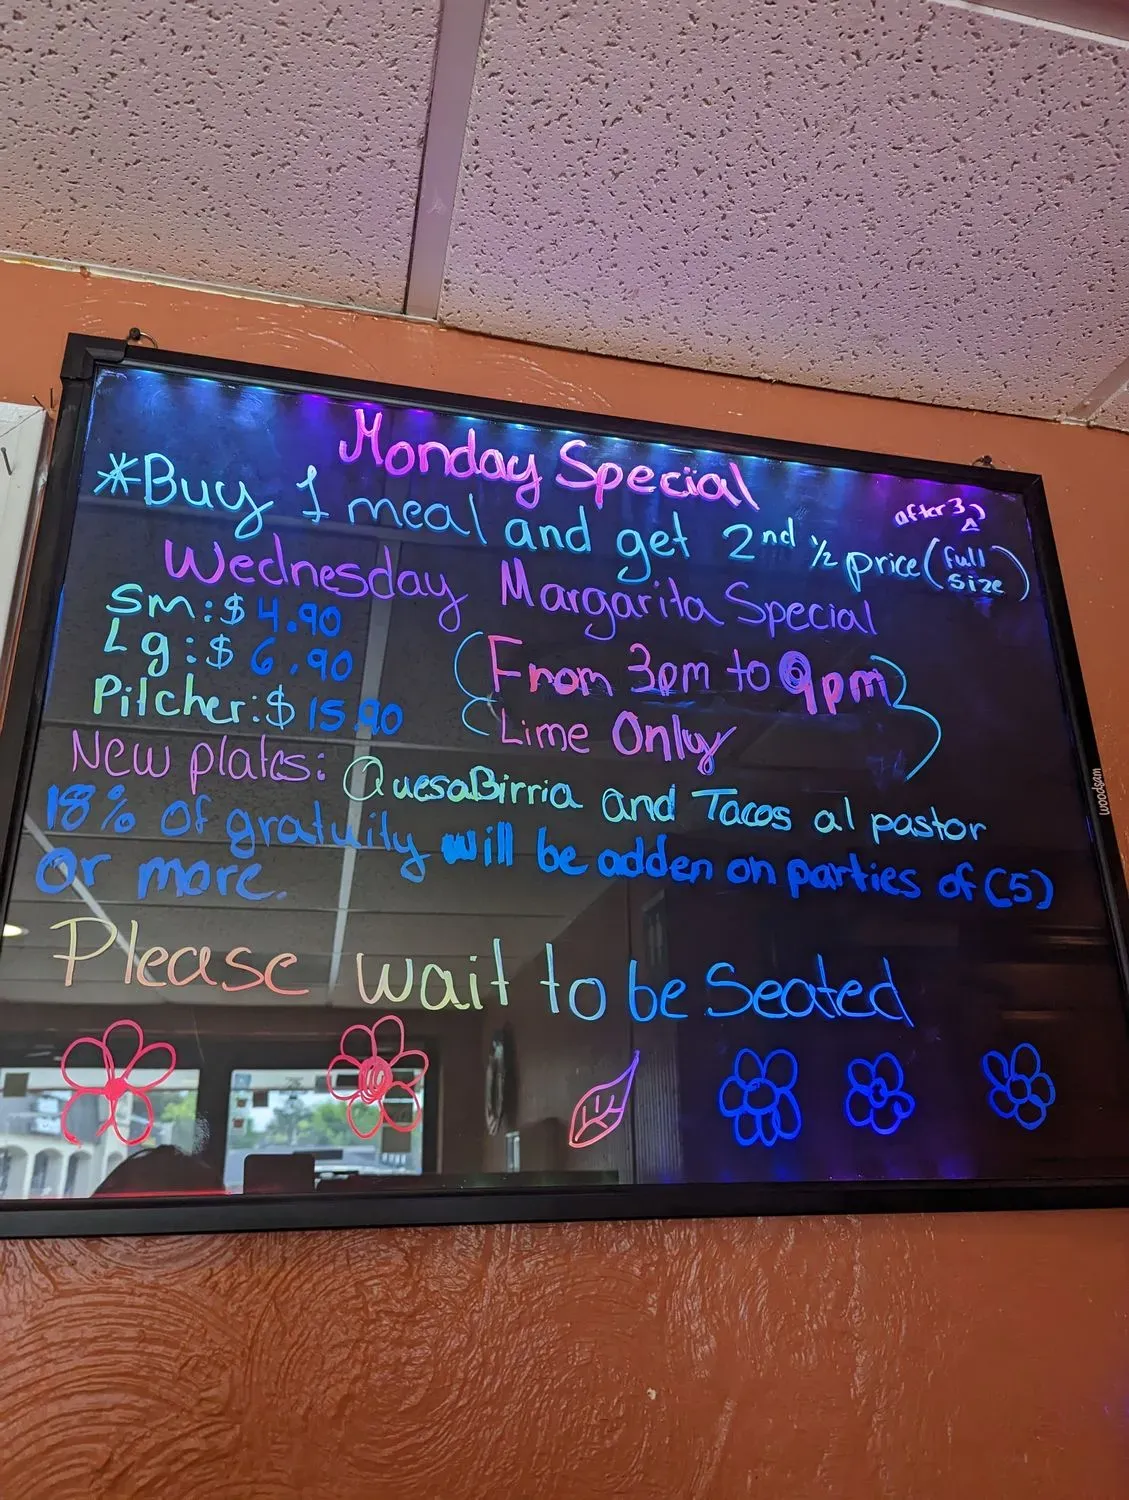 Monday Special
after 3
*Buy 1 meal and get 2nd ½ price (full size)
Wednesday Margarita Special
Sm: $ 4.90
Lg: $ 6.90
Pitcher: $ 15.90
(From 3pm to 9pm)
(Lime Only)
New plates: QuesaBirria and Tacos al pastor
18% of gratuity will be adden on parties of (5)
or more.
Please wait to be Seated
woodsam